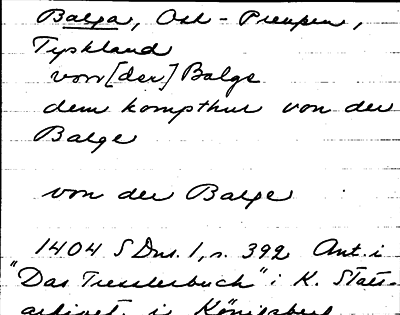 Balga, Ost-Preussen,
Tyskland
von [der] Balge
dem kompthur von der
Balge
von der Balge
1404 SDns. 1, s. 392 Ant. i
"Das Tresslerbuch" i K. Stats-
arkivet i Königsberg